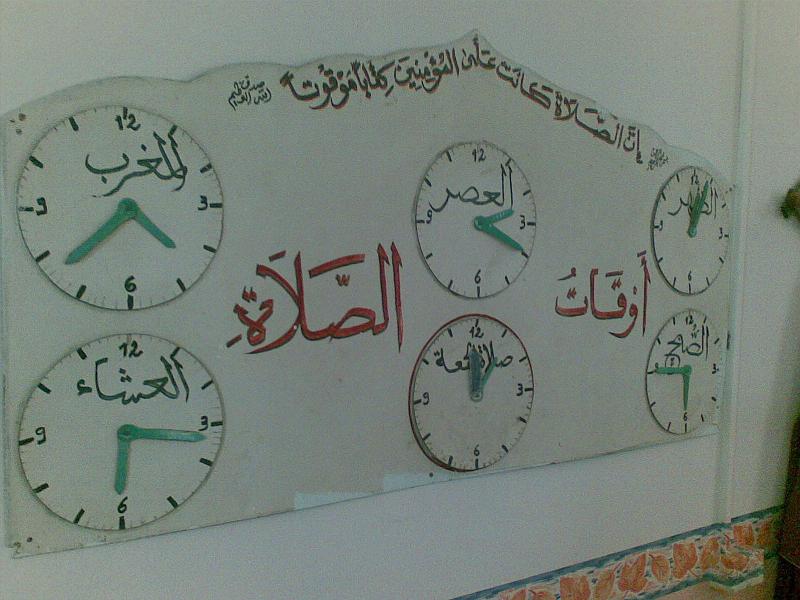 إِنَّ الصَّلَاةَ كَانَتْ عَلَى المُؤْمِنِينَ كِتَاباً مَوْقُوتاً
صدق الله العظيم
أَوْقَاتُ الصَّلَاةِ
الظهر
12
3
6
العصر
12
3
6
9
المغرب
12
3
6
9
12
3
6
صلاة الجمعة
12
3
6
9
العشاء
12
3
6
9